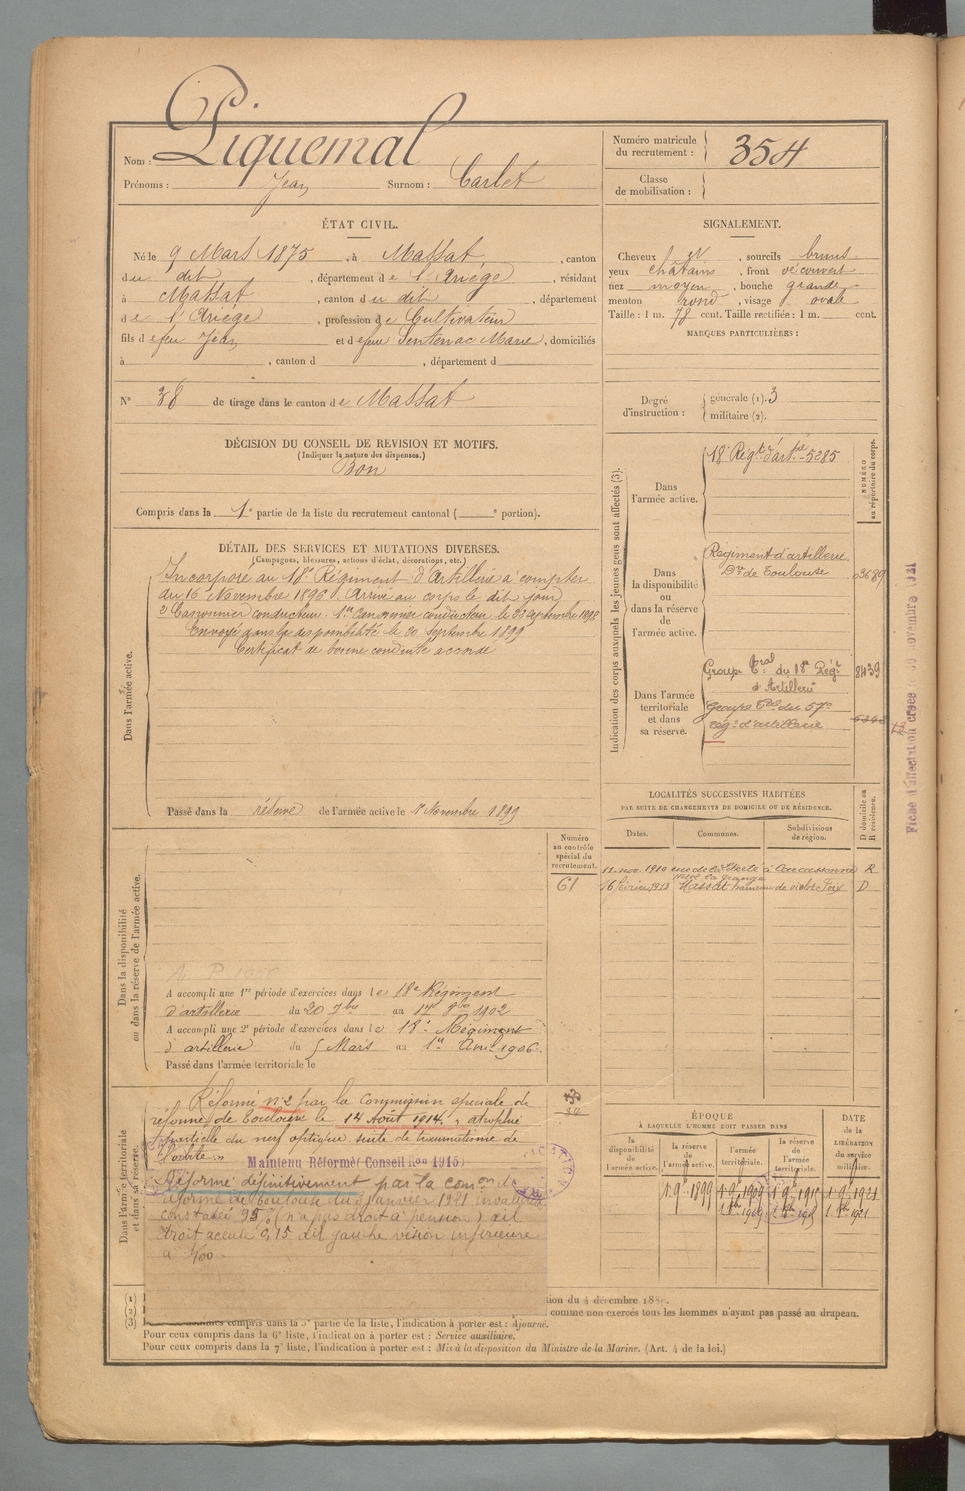 Nom : Piquemal
Prénoms : Jean Surnom : Carlet
Numéro matricule du recrutement : 354
Classe de mobilisation :
ÉTAT CIVIL.
Né le 9 Mars 1875, à Massat, canton
du dit, département de l'Ariège, résidant
à Massat, canton du dit, département
de l'Ariège, profession de Cultivateur
fils de feu Jean et de feue Sentenac Marie, domiciliés
à , canton d , département d
N° 38 de tirage dans le canton de Massat
SIGNALEMENT.
Cheveux et, sourcils bruns
yeux châtains, front découvert
nez moyen, bouche grande
menton rond, visage ovale
Taille : 1 m. 78 cent. Taille rectifiée : 1 m. cent.
MARQUES PARTICULIÈRES :
DÉCISION DU CONSEIL DE REVISION ET MOTIFS.
(Indiquer la nature des dispenses.)
Bon
Compris dans la 1e partie de la liste du recrutement cantonal ( e portion).
Degré d'instruction :
générale (1). 3
militaire (2).
DÉTAIL DES SERVICES ET MUTATIONS DIVERSES.
(Campagnes, blessures, actions d'éclat, décorations, etc.)
Dans l'armée active.
Incorporé au 18e Régiment d'Artillerie à compter
du 16 Novembre 1896. Arrivé au corps le dit jour
2e Canonnier conducteur. 1er Canonnier conducteur le 23 Septembre 1898
Envoyé dans la disponibilité le 20 Septembre 1899
Certificat de bonne conduite accordé
Passé dans la réserve de l'armée active le 1er Novembre 1899
Indication des corps auxquels les jeunes gens sont affectés (3).
NUMÉRO au répertoire du corps.
Dans l'armée active.
18e Régt d'artie 5285
Dans la disponibilité ou dans la réserve de l'armée active.
Régiment d'artillerie
Don de Toulouse 03689
Dans l'armée territoriale et dans sa réserve.
Groupe Tal du 18e Régt 8439
d'Artillerie
Groupe Tal du 57e
Régt d'artillerie
Fiche d'affectation créée le 30 novembre 1921
LOCALITÉS SUCCESSIVES HABITÉES
PAR SUITE DE CHANGEMENTS DE DOMICILE OU DE RÉSIDENCE.
Dates. Communes. Subdivisions de région. D domicile ou R résidence.
11 nov. 1910 rue de la Liberté à Carcassonne R
16 février 1913 Massat hameau de Foix D
Dans la disponibilité ou dans la réserve de l'armée active.
Numéro au contrôle spécial du recrutement.
61
A accompli une 1re période d'exercices dans le 18e Régiment
d'artillerie du 20 7bre au 17 8bre 1902
A accompli une 2e période d'exercices dans le 18e Régiment
d'artillerie du 5 Mars au 1er Avril 1906.
Passé dans l'armée territoriale le
Dans l'armée territoriale et dans sa réserve.
Réformé n°2 par la Commission spéciale de
réforme de Toulouse le 14 Août 1914, "atrophie
partielle du nerf optique suite de traumatisme de
l'orbite"
Maintenu Réformé (Conseil Ron 1915)
Réformé définitivement par la comon de
réforme de Toulouse du janvier 1921 invalidité
constatée 95% (n'a pas droit à pension) œil
droit acuité 0,15 œil gauche vision inférieure
à 1/100
ÉPOQUE
A LAQUELLE L'HOMME DOIT PASSER DANS
la disponibilité de l'armée active.
la réserve de l'armée active.
l'armée territoriale.
la réserve de l'armée territoriale.
DATE de la LIBÉRATION du service militaire.
1 9b 1899 1 9b 1909 1 9b 1915 1 9b 1921
(1) tion du 4 décembre 188
(2) comme non exercés tous les hommes n'ayant pas passé au drapeau.
(3) compris dans la 5e partie de la liste, l'indication à porter est : Ajourné.
Pour ceux compris dans la 6e liste, l'indication à porter est : Service auxiliaire.
Pour ceux compris dans la 7e liste, l'indication à porter est : Mis à la disposition du Ministre de la Marine. (Art. 4 de la loi.)